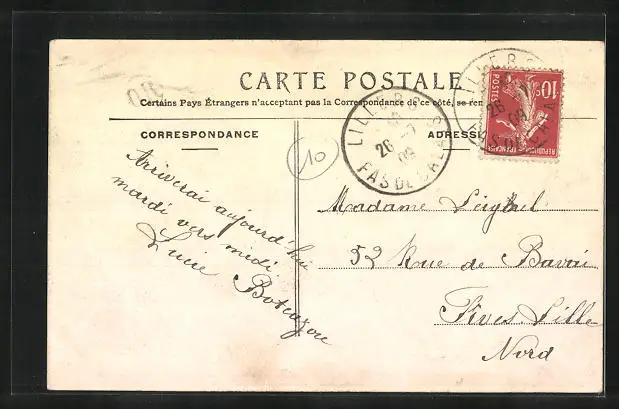 CARTE POSTALE
Certains Pays Étrangers n'acceptant pas la Correspondance de ce côté, se ren
CORRESPONDANCE
ADRESSE
10
Arriverai aujourd'hui
mardi vers midi.
Lucie
Madame
52 Rue de Bavai
Fives-Lille
Nord
LILLE R.S
26 -1
09
PAS DE CALAIS
LILLE R.S
26 -1
09
10c
POSTES
REPUBLIQUE FRANÇAISE